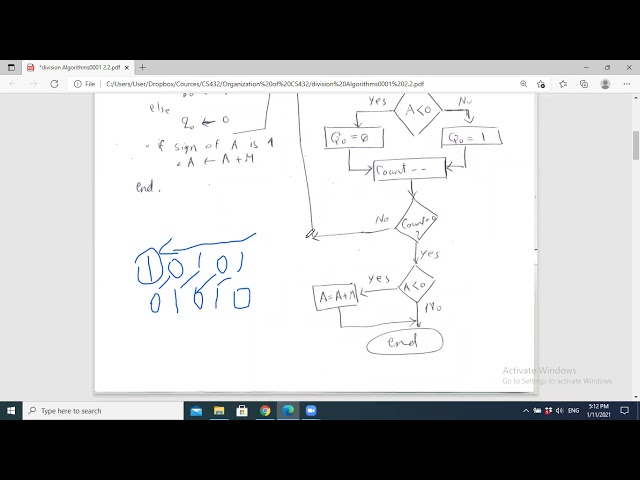 *division Algorithms0001 2.2.pdf
C:/Users/User/Dropbox/Cources/CS432/Organization%20of%20CS432/division%20Algorithms0001%202.2.pdf
else
q₀ ← 0
• if sign of A is 1
• A ← A + M
end.
Yes
A<0
No
Q₀ = 0
Q₀ = 1
Count --
No
Count=0
?
Yes
Yes
A<0
A=A+M
No
end
1 0 1 0 1
0 1 0 1 0
Activate Windows
Go to Settings to activate Windows.
Type here to search
ENG
5:12 PM
1/11/2021